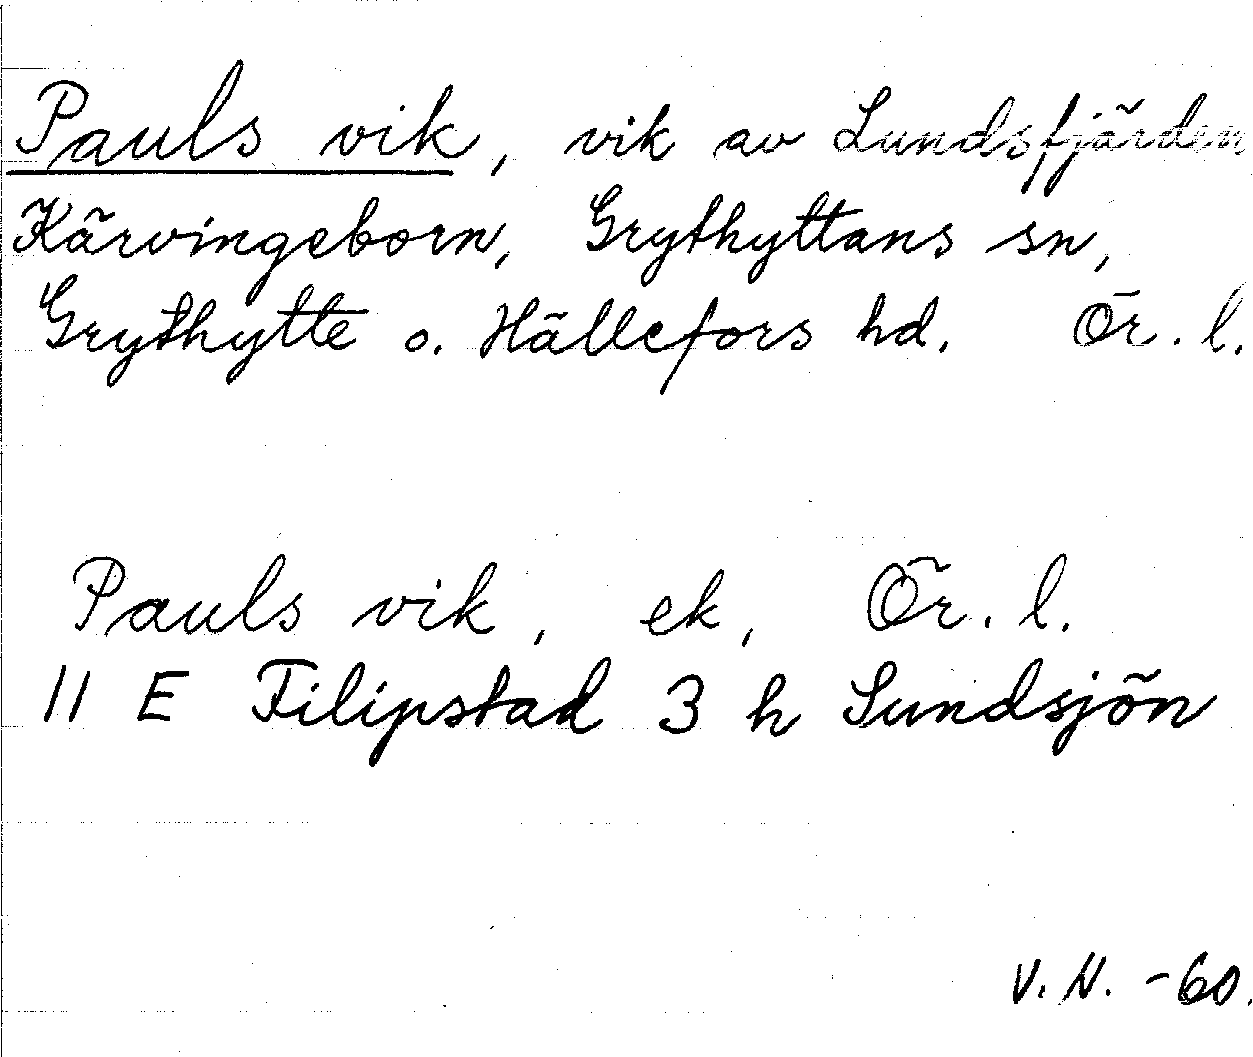 Pauls vik, vik av Lundsfjärden
Kärvingeborn, Grythyttans sn,
Grythytte o. Hällefors hd. Ör. l.
Pauls vik, ek, Ör. l.
11 E Filipstad 3 h Sundsjön
V. N. -60.